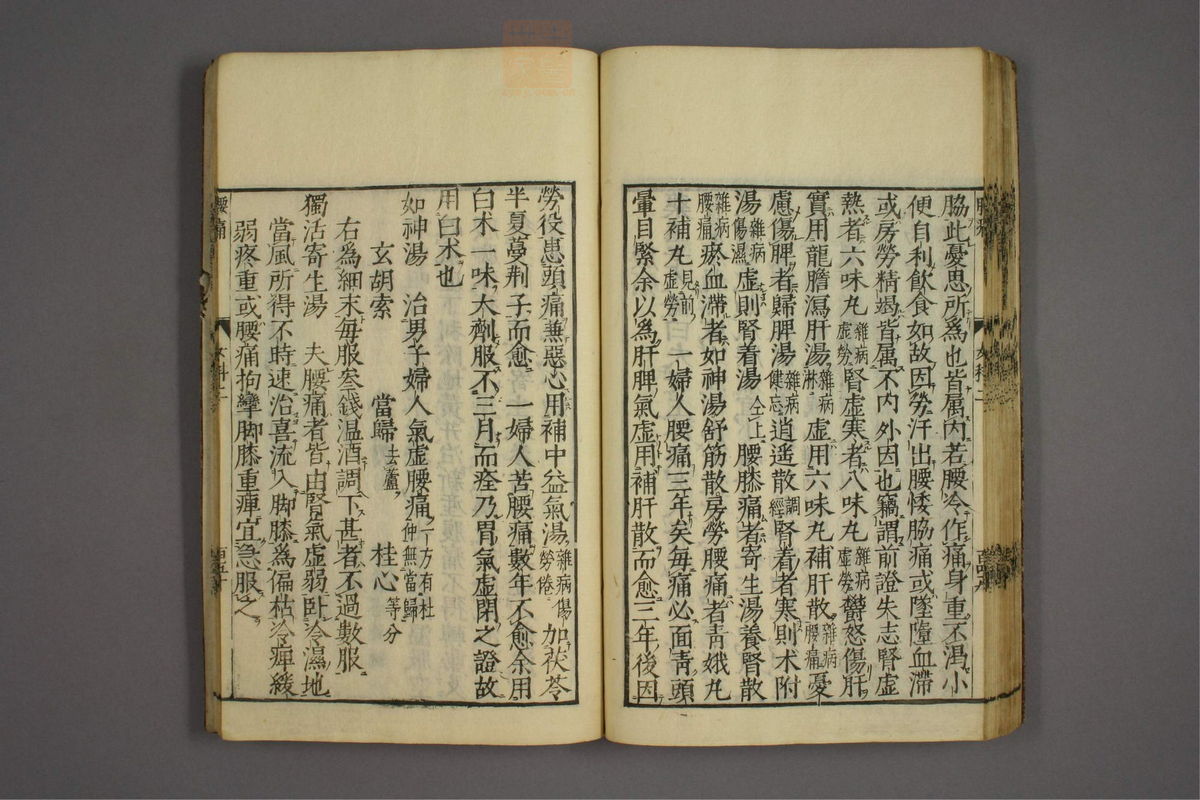 脇此憂思所爲也皆属内若腰冷作痛身重不渇小
便自利飲食如故因勞汗出腰矮脇痛或墜墮血滞
或房勞精竭皆属不内外因也竊謂前證失志腎虚
熱者六味丸雜病虚勞腎虚寒者八味丸雜病虚勞鬱怒傷肝
實用龍膽瀉肝湯雜病淋虚用六味丸補肝散雜病腰痛憂
慮傷脾者歸脾湯雜病健忘逍遥散調經腎着者寒則术附
湯雜病傷濕虚則腎着湯仝上腰膝痛者寄生湯養腎散
雜病腰痛瘀血滞者如神湯舒筋散房勞腰痛者靑娥丸
十補丸見前虚勞一婦人腰痛三年矣毎痛必面靑頭
暈目緊余以爲肝脾氣虚用補肝散而愈三年後因
勞役患頭痛兼惡心用補中益氣湯雜病傷勞倦加茯苓
半夏蔓荆子而愈一婦人苦腰痛數年不愈余用
白术一味大劑服不三月而痊乃胃氣虚閉之證故
用白术也
如神湯 治男子婦人氣虚腰痛一方有杜仲無當歸
玄胡索 當歸去蘆 桂心等分
右爲細末毎服叁錢温酒調下甚者不過數服
獨活寄生湯 夫腰痛者皆由腎氣虚弱卧冷濕地
當風所得不時速治喜流入脚膝爲偏枯冷痺緩
弱疼重或腰痛拘攣脚膝重痺宜急服之
腰痛
女科二